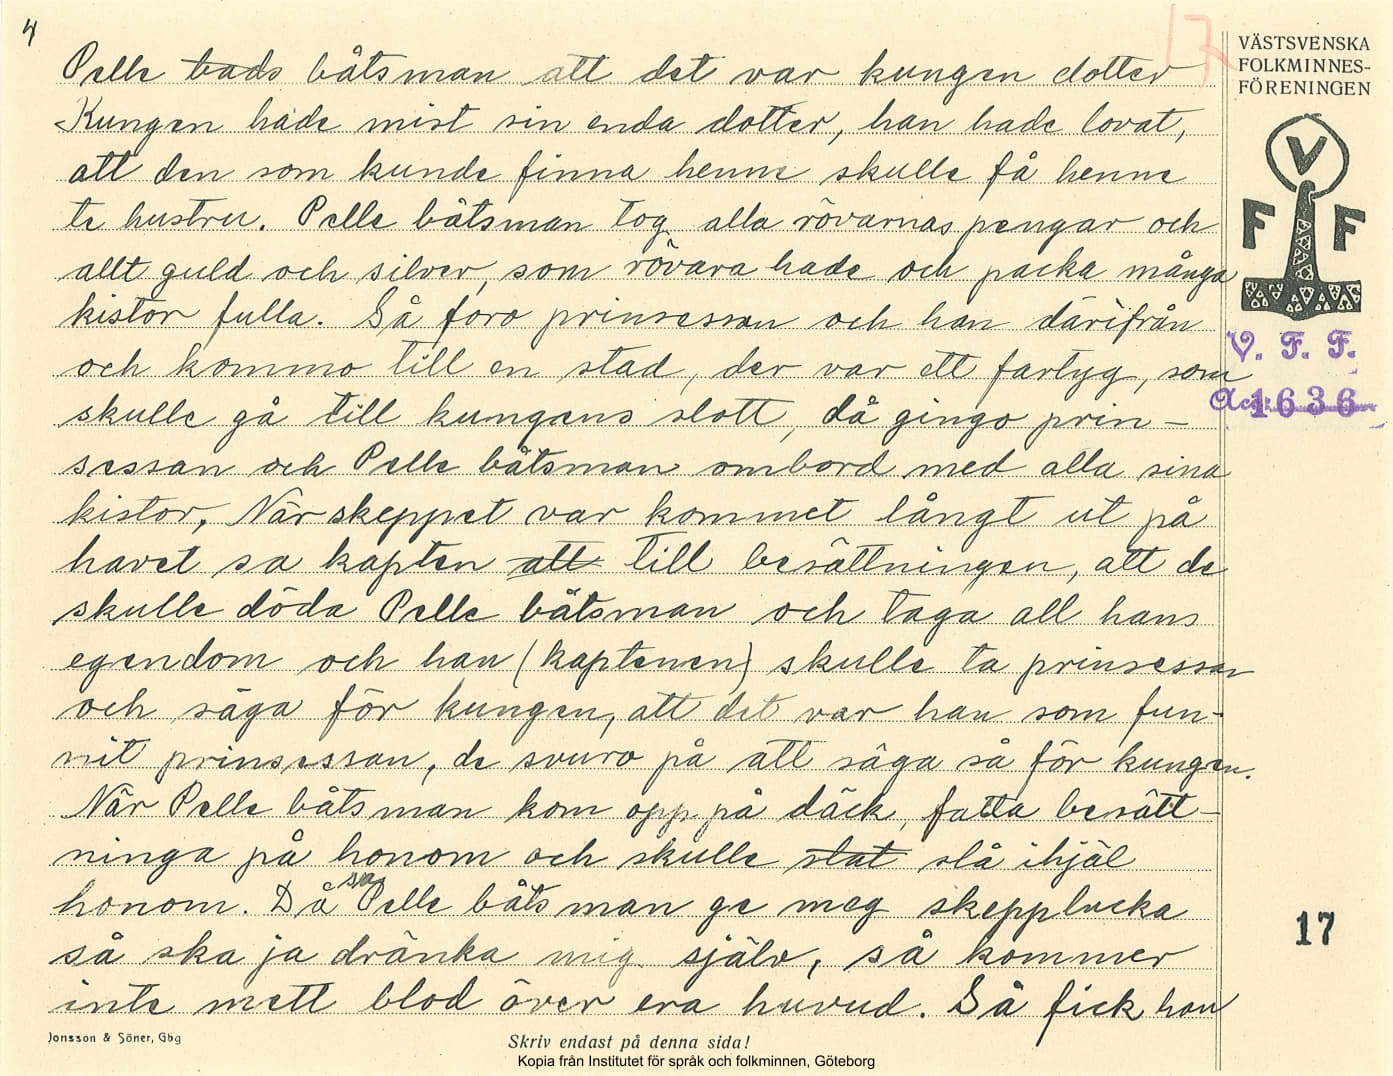 4
17
Pelle bads båtsman att det var kungen dotter
Kungen hade mist sin enda dotter, han hade lovat,
att den som kunde finna henne skulle få henne
te hustru. Pelle båtsman tog alla rövarnas pengar och
allt guld och silver, som rövara hade och packa många
kistor fulla. Så foro prinsessan och han därifrån
och kommo till en stad, der var ett fartyg, som
skulle gå till kungens slott, då gingo prin-
sessan och Pelle båtsman ombord med alla sina
kistor. När skeppet var kommet långt ut på
havet sa kapten att till besättningen, att de
skulle döda Pelle båtsman och taga all hans
egendom och han (kaptenen) skulle ta prinsessan
och säga för kungen, att det var han som fun-
nit prinsessan, de svuro på att säga så för kungen.
När Pelle båtsman kom opp på däck, fatta besätt-
ninga på honom och skulle slat slå ihjäl
honom. Då sa Pelle båtsman ge meg skepplucka
så ska ja dränka mig själv, så kommer
inte mett blod över era huvud. Så fick han
VÄSTSVENSKA
FOLKMINNES-
FÖRENINGEN
V
F F
V. F. F.
Acc: 1636
17
Jonsson & Söner, Gbg
Skriv endast på denna sida!
Kopia från Institutet för språk och folkminnen, Göteborg